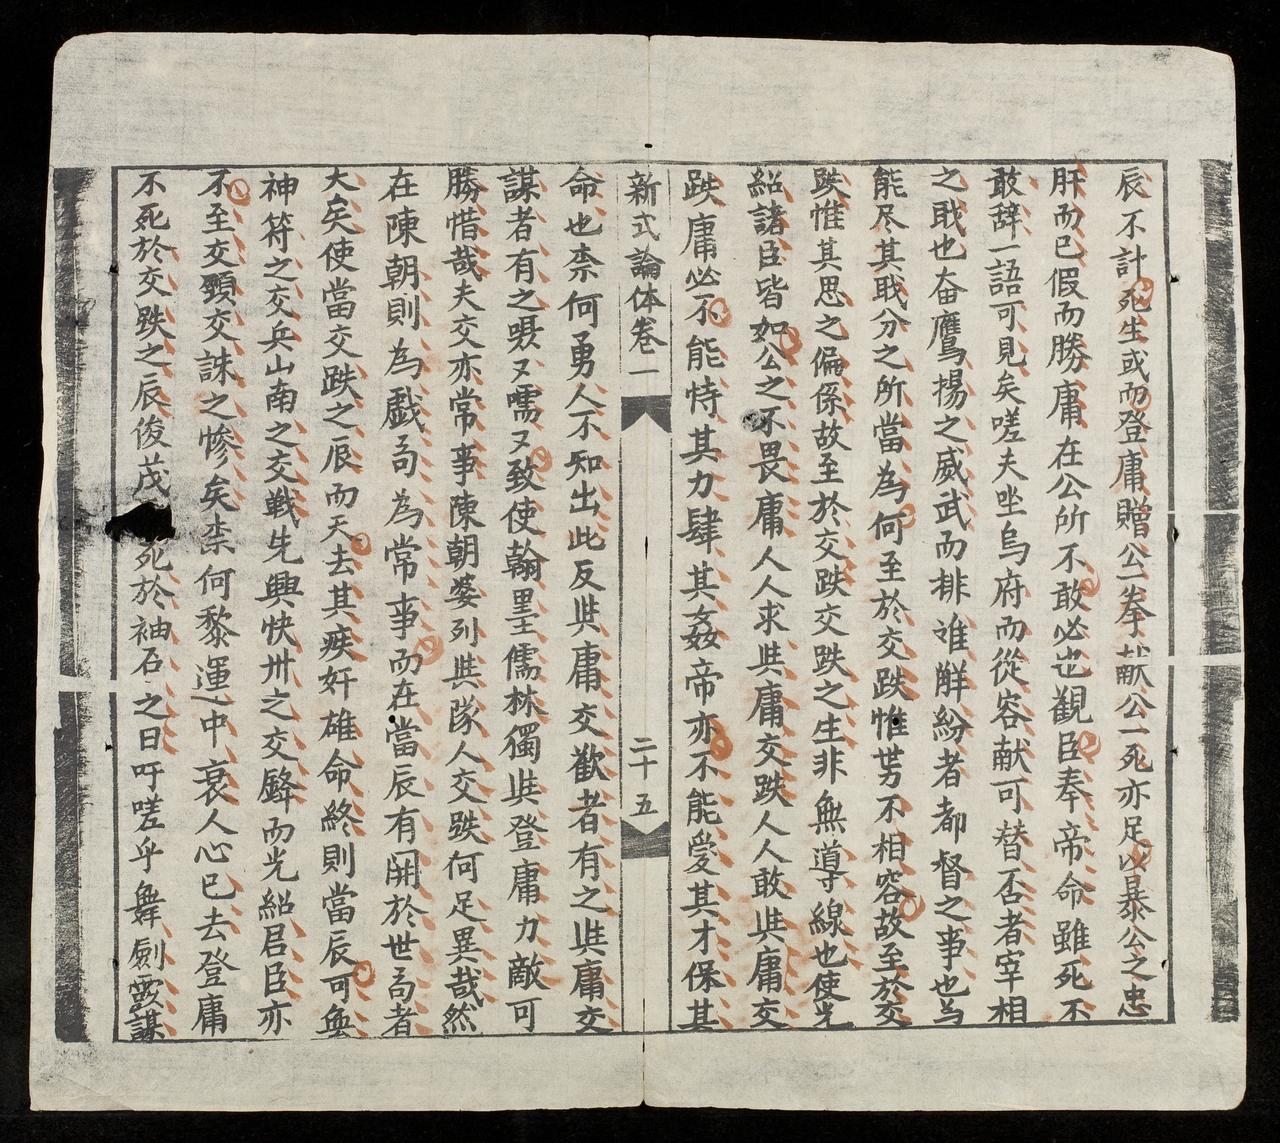 辰不計死生或而登庸贈公一拳献公一死亦足以暴公之忠
肝而已假而勝庸在公所不敢必也観臣奉帝命雖死不
敢辞一語可見矣嗟夫坐烏府而從容献可替否者宰相
之戝也奋鷹揚之威武而排难觧紛者都督之事也為
能尽其戝分之所當為何至於交跌惟势不相容故至於交
跌惟其思之偏係故至於交跌交跌之生非無導線也使光
紹諸臣皆如公之不畏庸人人求與庸交跌人人敢與庸交
跌庸必不能恃其力肆其姦帝亦不能受其才保其
新式論体巻一
二十五
命也柰何勇人不知出此反與庸交歡者有之與庸交
謀者有之嗫又嚅又致使翰墨儒林獨與登庸力敵可
勝惜哉夫交亦常事陳朝婆列與隊人交跌何足異哉然
在陳朝則為戯局為常事而在當辰有関於世局者
大矣使當交跌之辰而天去其疾奸雄命終則當辰可無
神符之交兵山南之交戦先興快州之交鋒而光紹君臣亦
不至交頸交誅之惨矣柰何黎運中衰人心已去登庸
不死於交跌之辰俊茂死於袖石之日吁嗟乎舞劍霞謀